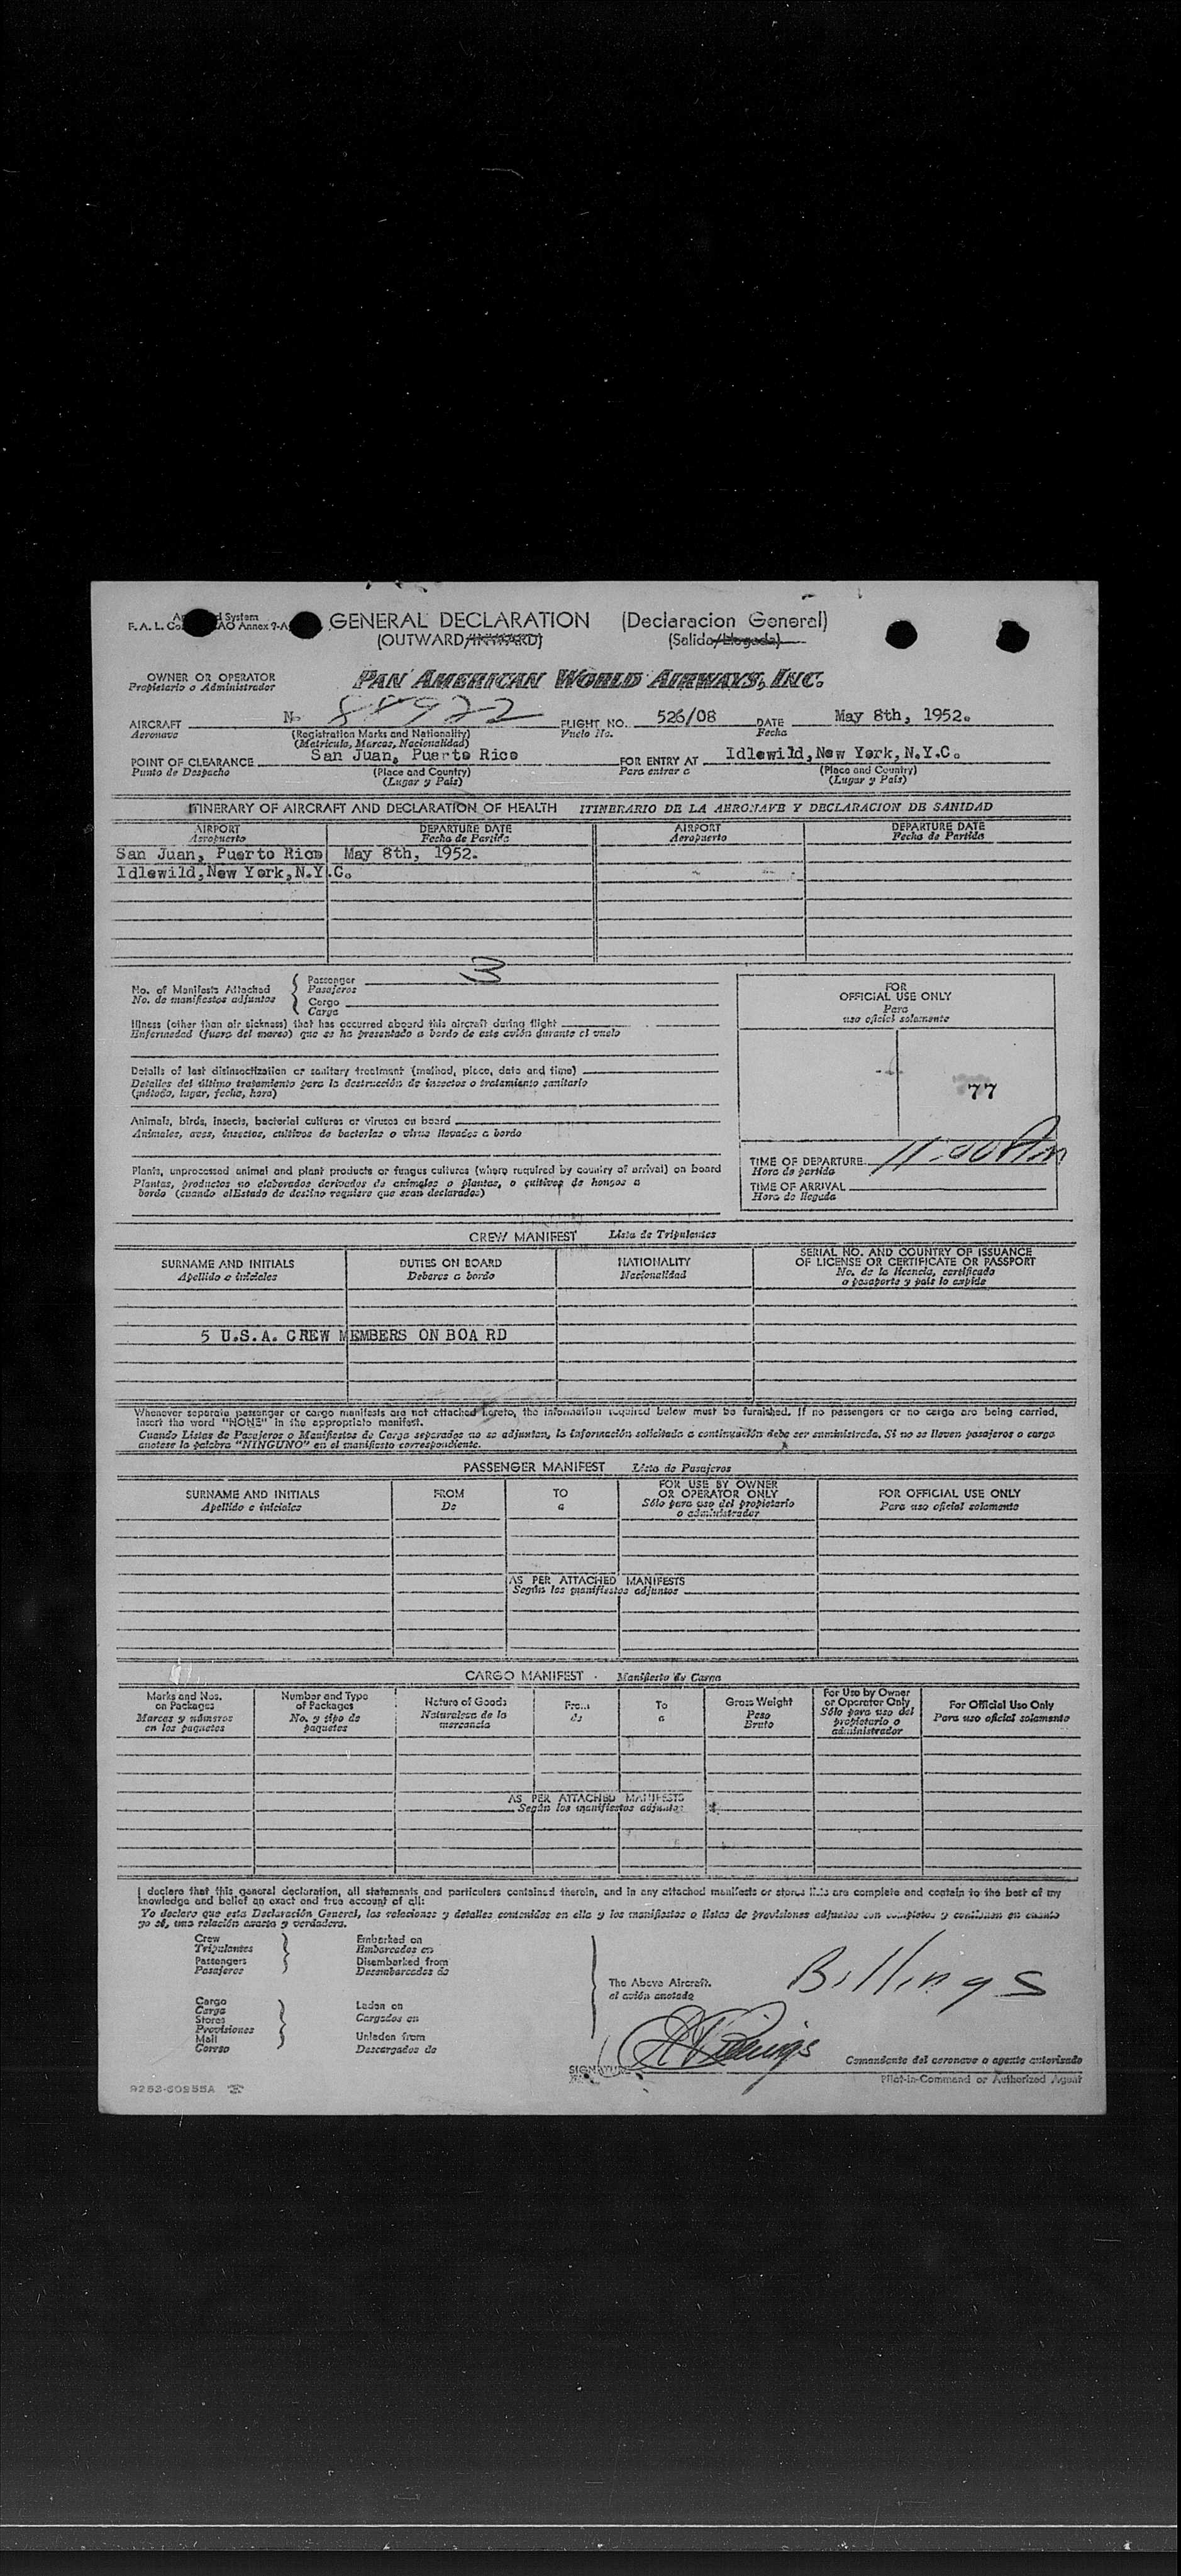 GENERAL DECLARATION (Declaracion General)
F. A. L. AO Annex 9-A
(OUTWARD/INWARD) (Salida/Llegada)
OWNER OR OPERATOR PAN AMERICAN WORLD AIRWAYS, INC.
Propietario o Administrador
AIRCRAFT N- 88922 FLIGHT NO. 526/08 DATE May 8th, 1952.
Aeronave (Registration Marks and Nationality) Vuelo No. Fecha
(Matricula, Marcas, Nacionalidad)
POINT OF CLEARANCE San Juan, Puerto Rico FOR ENTRY AT Idlewild,New York,N.Y.C.
Punto de Despacho (Place and Country) Para entrar a (Place and Country)
(Lugar y País) (Lugar y País)
ITINERARY OF AIRCRAFT AND DECLARATION OF HEALTH ITINERARIO DE LA AERONAVE Y DECLARACION DE SANIDAD
AIRPORT DEPARTURE DATE AIRPORT DEPARTURE DATE
Aeropuerto Fecha de Partida Aeropuerto Fecha de Partida
San Juan, Puerto Rico May 8th, 1952.
Idlewild,New York,N.Y.C.
No. of Manifests Attached Passenger 3
No. de manifiestos adjuntos Pasajeros
Cargo
Carga
FOR
OFFICIAL USE ONLY
Para
uso oficial solamente
77
Illness (other than air sickness) that has occurred aboard this aircraft during flight
Enfermedad (fuera del mareo) que se ha presentado a bordo de este avión durante el vuelo
Details of last disinsectization or sanitary treatment (method, place, date and time)
Detalles del último tratamiento para la destrucción de insectos o tratamiento sanitario
(método, lugar, fecha, hora)
Animals, birds, insects, bacterial cultures or viruses on board
Animales, aves, insectos, cultivos de bacterias o virus llevados a bordo
TIME OF DEPARTURE 11:00 Pm
Hora de partida
TIME OF ARRIVAL
Hora de llegada
Plants, unprocessed animal and plant products or fungus cultures (where required by country of arrival) on board
Plantas, productos no elaborados derivados de animales o plantas, o cultivos de hongos a
bordo (cuando elEstado de destino requiere que sean declarados)
CREW MANIFEST Lista de Tripulantes
SURNAME AND INITIALS DUTIES ON BOARD NATIONALITY SERIAL NO. AND COUNTRY OF ISSUANCE
OF LICENSE OR CERTIFICATE OR PASSPORT
Apellido e iniciales Deberes a bordo Nacionalidad No. de la licencia, certificado
o pasaporte y país lo expide
5 U.S.A. CREW MEMBERS ON BOA RD
Whenever separate passenger or cargo manifests are not attached hereto, the information required below must be furnished. If no passengers or no cargo are being carried,
insert the word "NONE" in the appropriate manifest.
Cuando Listas de Pasajeros o Manifiestos de Carga separados no se adjuntan, la información solicitada a continuación debe ser suministrada. Si no se llevan pasajeros o carga
anotese la palabra "NINGUNO" en el manifiesto correspondiente.
PASSENGER MANIFEST Lista de Pasajeros
SURNAME AND INITIALS FROM TO FOR USE BY OWNER
OR OPERATOR ONLY FOR OFFICIAL USE ONLY
Apellido e iniciales De a Sólo para uso del propietario
o administrador Para uso oficial solamente
AS PER ATTACHED MANIFESTS
Según los manifiestos adjuntos
CARGO MANIFEST Manifiesto de Carga
Marks and Nos.
on Packages
Marcas y números
en los paquetes
Number and Type
of Packages
No. y tipo de
paquetes
Nature of Goods
Naturaleza de la
mercancia
From
de
To
a
Gross Weight
Peso
Bruto
For Use by Owner
or Operator Only
Sólo para uso del
propietario o
administrador
For Official Use Only
Para uso oficial solamente
AS PER ATTACHED MANIFESTS
Según los manifiestos adjuntos
I declare that this general declaration, all statements and particulars contained therein, and in any attached manifests or stores lists are complete and contain to the best of my
knowledge and belief an exact and true account of all:
Yo declaro que esta Declaración General, las relaciones y detalles contenidos en ella y los manifiestos o listas de provisiones adjuntos son completos y contienen en cuanto
yo sé, una relación exacta y verdadera.
Crew
Tripulantes
Passengers
Pasajeros
Embarked on
Embarcados en
Disembarked from
Desembarcados de
Cargo
Carga
Stores
Provisiones
Mail
Correo
Laden on
Cargados en
Unladen from
Descargados de
The Above Aircraft.
el avión anotado
Billings
SIGNATURE
Comandante del aeronave o agente autorizado
Pilot-in-Command or Authorized Agent
9253-60255A